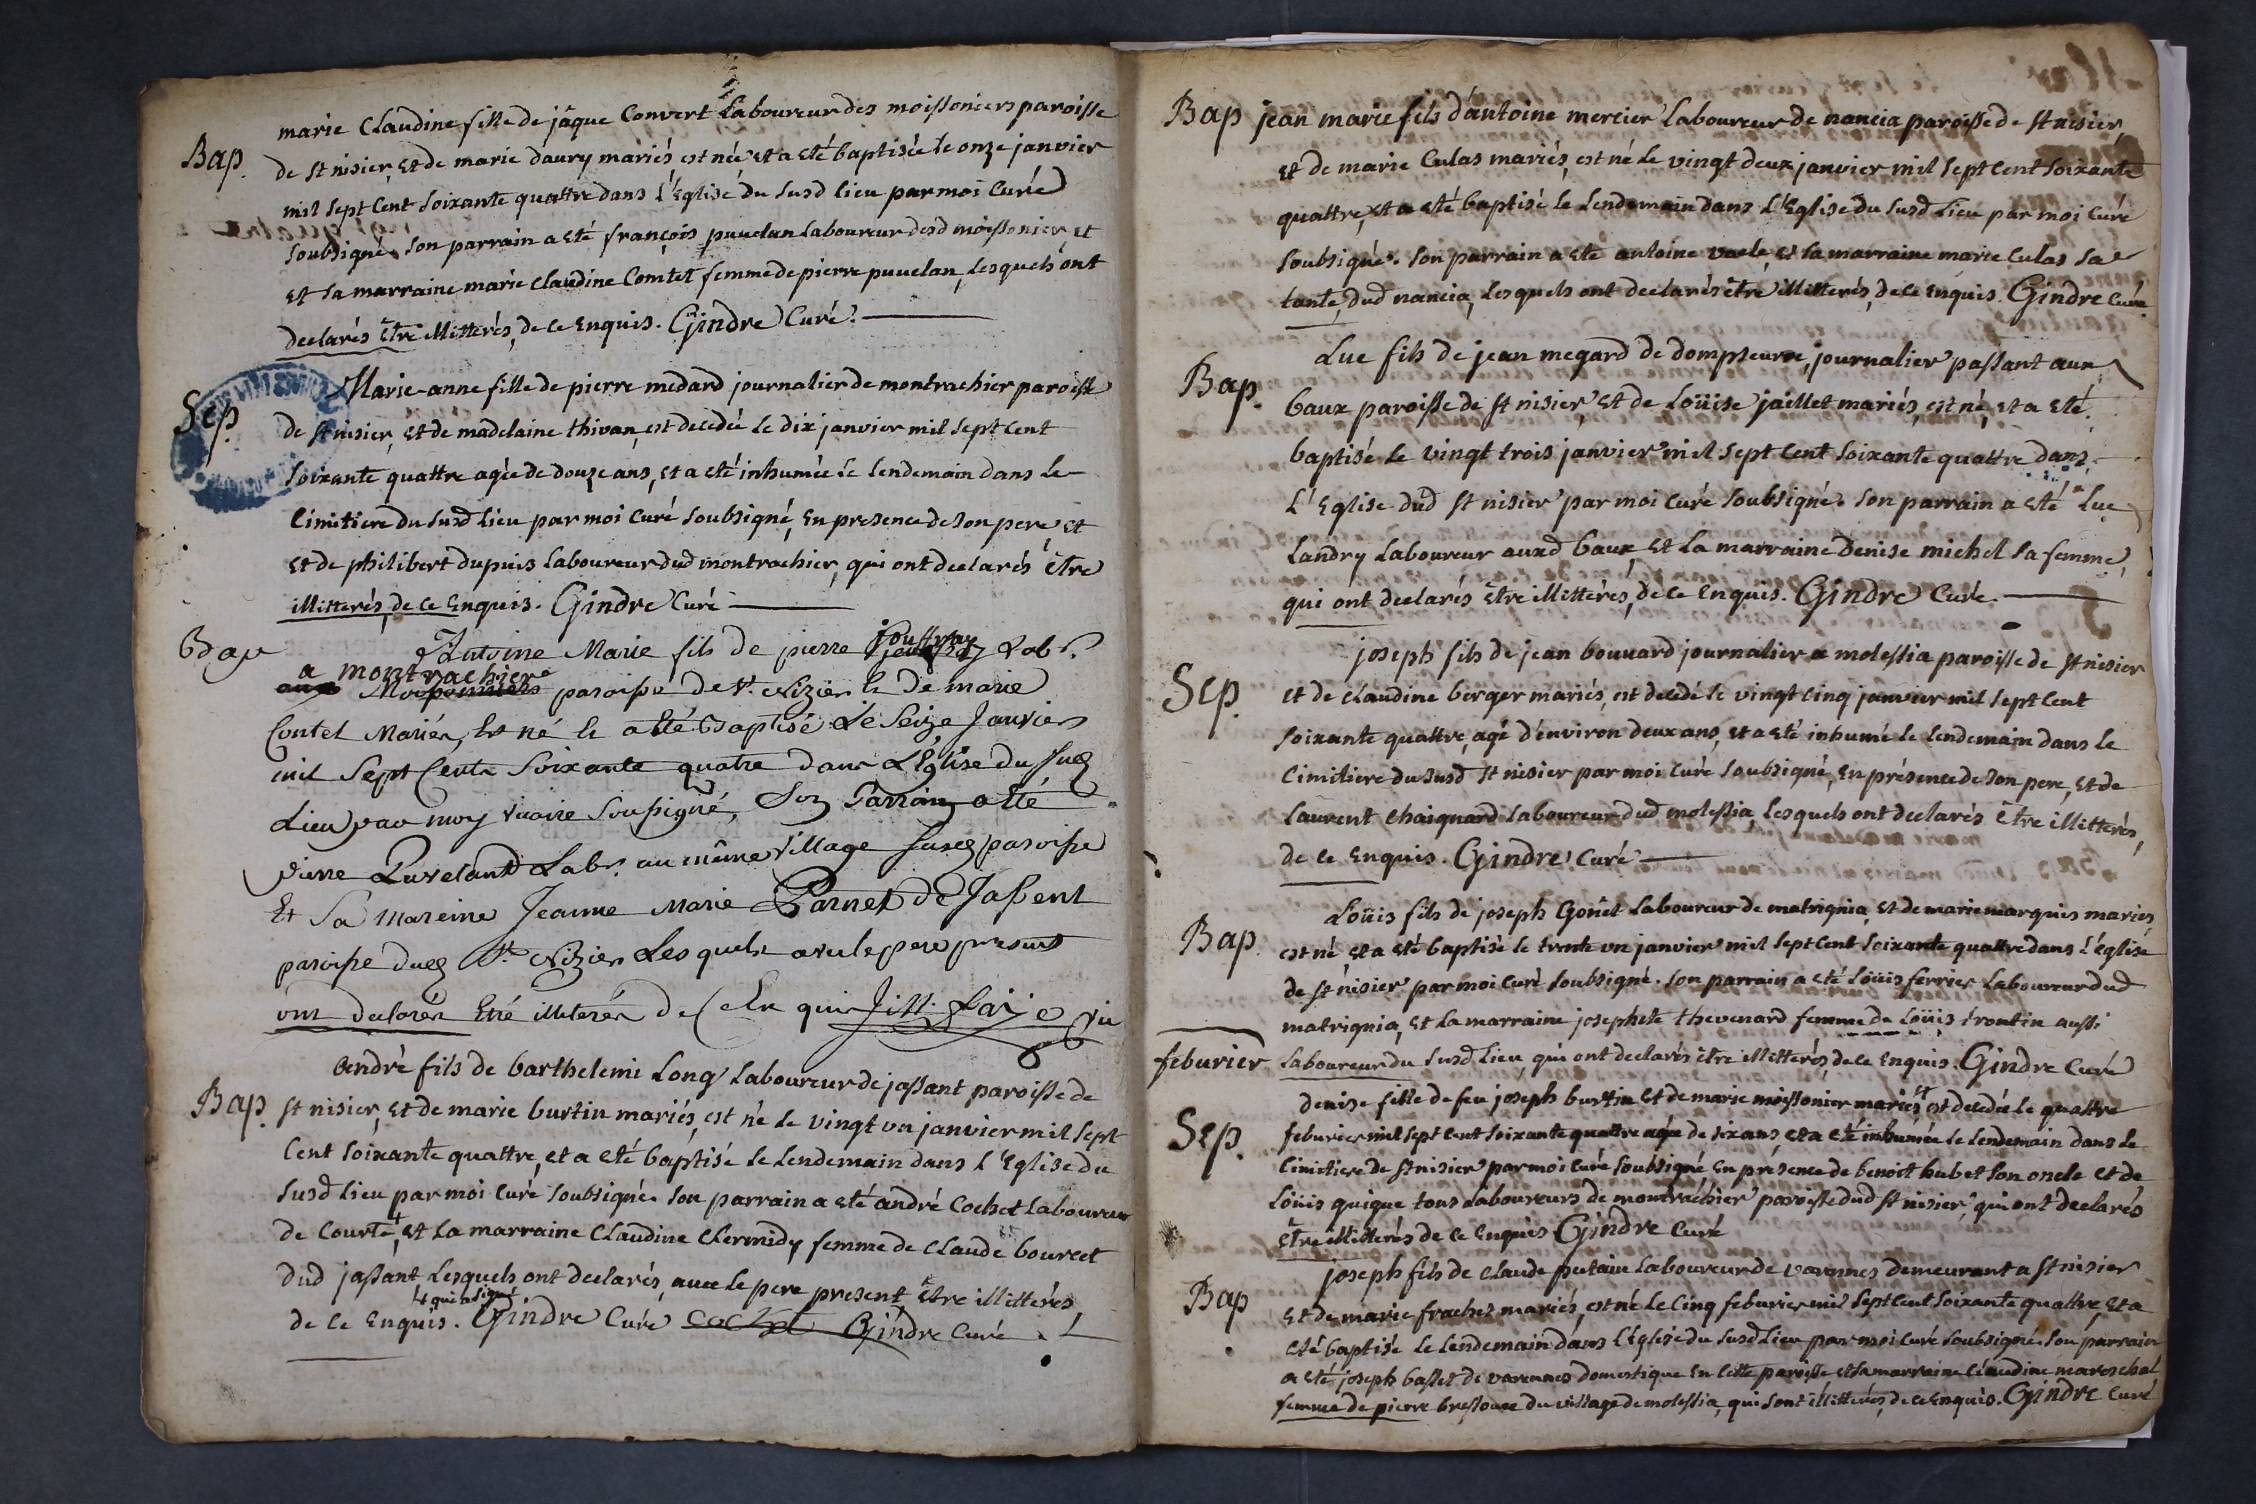 Bap.
marie Claudine fille de jâque Convert Laboureur des moissoniers paroisse
de st nisier, et de marie daury mariés est née et a eté baptisée le onze janvier
mil sept Cent soixante quattre dans l'Eglise du susd lieu par moi Curé
soubsigné. son parrain a eté françois puuelan laboureur desd moissonier, et
et sa marraine marie Claudine Comtet femme de pierre puuelan, lesquels ont
declarés être illitterés, de ce enquis. Gindre Curé.
Sep.
Marie-anne fille de pierre medard journalier de montrachier paroisse
de st nisier, et de madelaine thivan, est decedée le dix janvier mil sept Cent
soixante quattre agée de douze ans, et a eté inhumée le lendemain dans le
Cimitiere du susd lieu par moi Curé soubsigné, en presence de son pere, et
et de philibert dupuis laboureur dud montrachier, qui ont declarés être
illitterés, de ce enquis. Gindre Curé
Bap
Antoine Marie fils de pierre jouffray Lab.r
a montrachier paroisse de St. Nizier & de marie
Contet Mariés, est né & a été Baptisé Le Seize Janvier
mil Sept Cents Soixante quatre dans L'Eglise du susd
Lieu par moy vicaire Soussigné, Son Parrain a Eté
pierre Puveland Lab.r au même village susd paroisse
Et Sa Mareine Jeanne Marie Parnet de Jassent
paroisse dud St. Nizier Lesquels avec le pere present
ont declarés Etré illiterés de Ce Enquis J:M: Faije vic
Bap.
André fils de barthelemi Long Laboureur de jassant paroisse de
st nisier, et de marie burtin mariés, est né le vingt un janvier mil sept
Cent soixante quattre, et a eté baptisé le lendemain dans l'Eglise du
susd lieu par moi Curé soubsigné. son parrain a eté andré Cochet Laboureur
de Courte, et la marraine Claudine Clermidy femme de Claude bourcet
dud jassant lesquels ont declarés, avec le pere present être illitterés
qui a signé
de ce enquis. Gindre Curé cochet Gindre Curé.
Bap
jean marie fils d'antoine mercier laboureur de nancia paroisse de st nisier,
et de marie Culas mariés, est né le vingt deux janvier mil sept Cent soixante
quattre, et a eté baptisé le lendemain dans l'Eglise du susd lieu par moi Curé
soubsigné. son parrain a eté antoine vaele et sa marraine marie Culas sa
tante, dud nancia, lesquels ont declarés être illitterés, de ce enquis. Gindre Curé
Bap.
Luc fils de jean megard de dompseurre, journalier passant aux
baux paroisse de st nisier, et de Loüise jaillet mariés, est né, et a eté
baptisé le vingt trois janvier mil sept Cent soixante quattre dans
l'Eglise dud st nisier par moi Curé soubsigné. son parrain a eté Luc
Landry laboureur auxd baux, et la marraine denise michel sa femme,
qui ont declarés être illitterés, de ce enquis. Gindre Curé.
Sep.
joseph fils de jean bouvard journalier a molessia paroisse de st nisier
et de Claudine berger mariés, est decedé le vingt Cinq janvier mil sept Cent
soixante quattre, agé d'environ deux ans, et a eté inhumé le lendemain dans le
Cimitiere du susd st nisier par moi Curé soubsigné, en présence de son pere, et de
laurent Chaignard laboureur dud molessia, lesquels ont declarés être illitterés,
de ce enquis. Gindre Curé
Bap
Loüis fils de joseph Gonet laboureur de matrignia, et de marie marquis mariés
est né et a eté baptisé le trente un janvier mil sept Cent soixante quattre dans l'église
de st nisier par moi Curé soubsigné. son parrain a eté Loüis ferrier laboureur dud
matrignia, et la marraine josephete thevenard femme de Loüis trontin aussi
laboureur du susd lieu, qui ont declarés être illitterés, de ce enquis. Gindre Curé
feburier
Sep.
denise fille de feu joseph burtin et de marie moissonier mariés est decedée le quattre
feburier mil sept Cent soixante quattre agée de six ans, et a eté inhumée le lendemain dans le
Cimitiere de st nisier par moi Curé soubsigné en présence de benoit hubet son oncle et de
Loüis quique tous laboureurs de montrachier paroisse dud st nisier, qui ont declarés
être illitterés de ce enquis Gindre Curé
Bap
joseph fils de Claude putain laboureur de varennes demeurant a st nisier
et de marie frachet mariés, est né le Cinq feburier mil sept Cent soixante quattre, et a
eté baptisé le lendemain dans l'église du susd lieu par moi Curé soubsigné. son parrain
a eté joseph basset de varennes domestique en cette paroisse et la marraine Claudine mareschal
femme de pierre bressoux du village de molessia, qui sont illitterés, de ce enquis. Gindre Curé